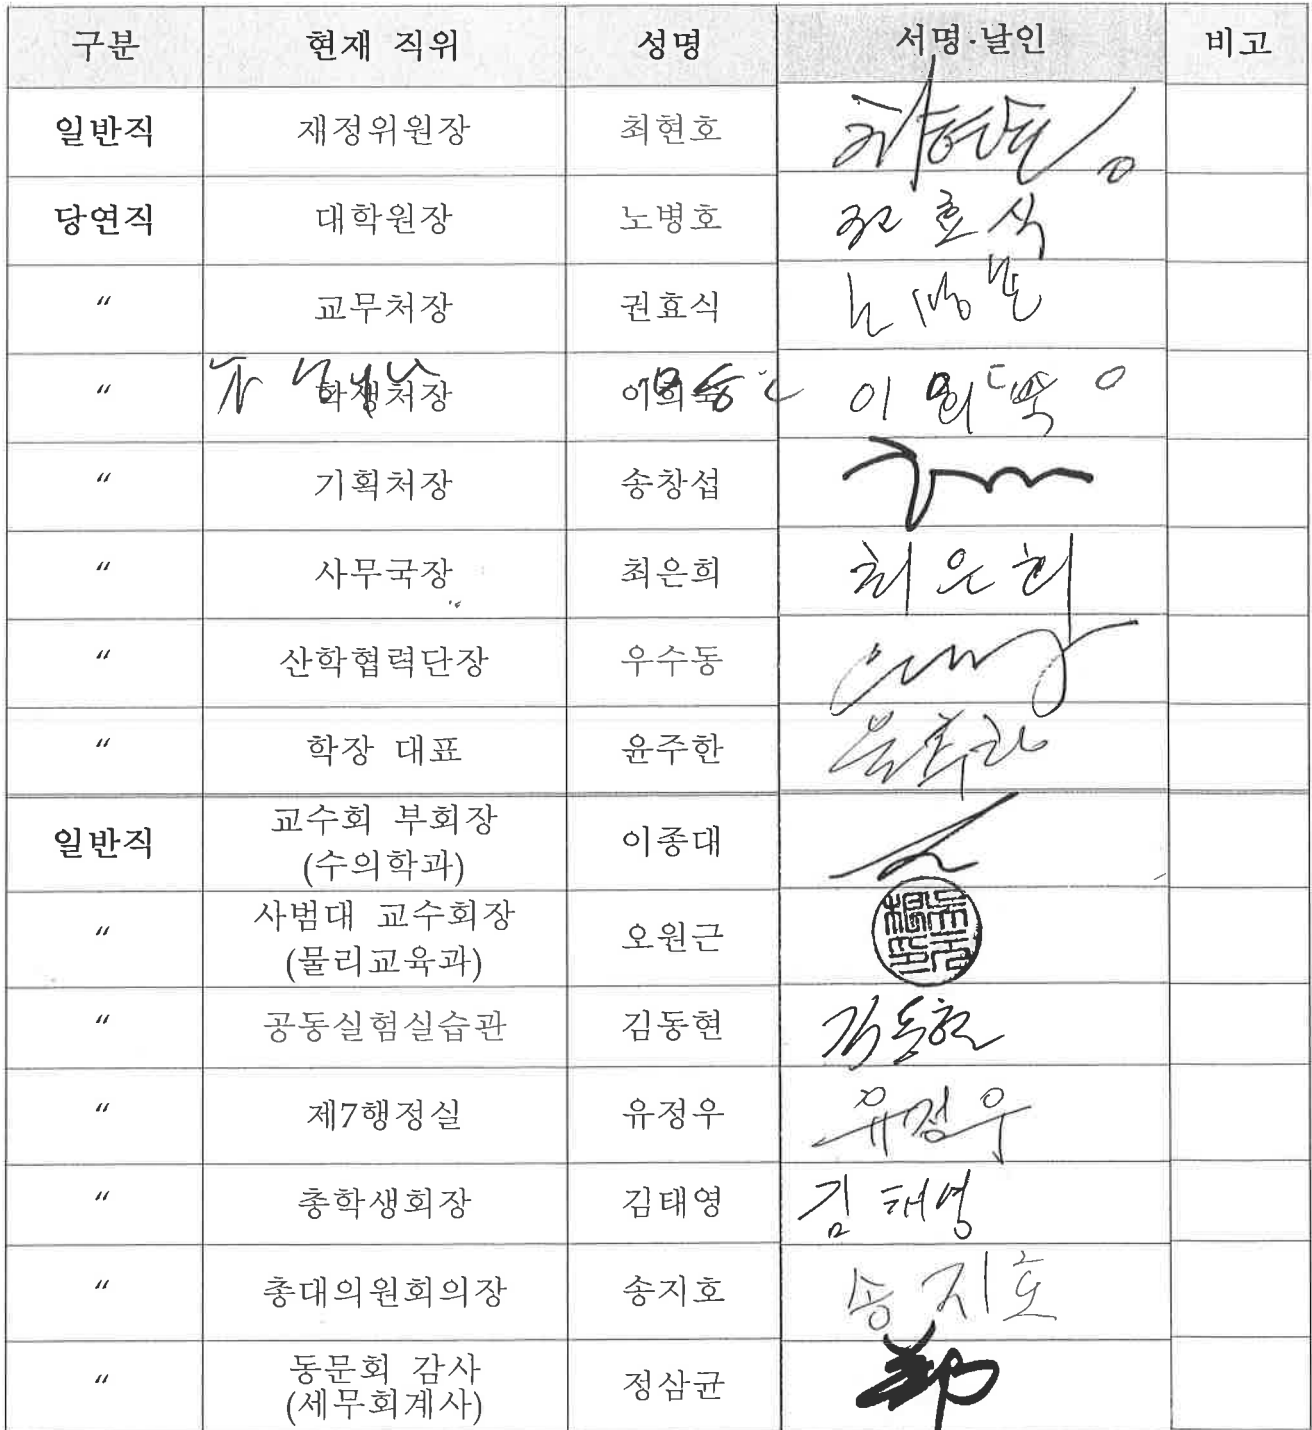 구분 현재 직위 성명 서명·날인 비고
일반직 재정위원장 최현호 최현호
당연직 대학원장 노병호 권효식
〃 교무처장 권효식 노병호
〃 학생처장 이희숙 이희숙
〃 기획처장 송창섭
〃 사무국장 최은희 최은희
〃 산학협력단장 우수동
〃 학장 대표 윤주한 윤주한
일반직 교수회 부회장 이종대
(수의학과)
〃 사범대 교수회장 오원근
(물리교육과)
〃 공동실험실습관 김동현 김동현
〃 제7행정실 유정우 유정우
〃 총학생회장 김태영 김태영
〃 총대의원회의장 송지호 송지호
〃 동문회 감사 정삼균
(세무회계사)